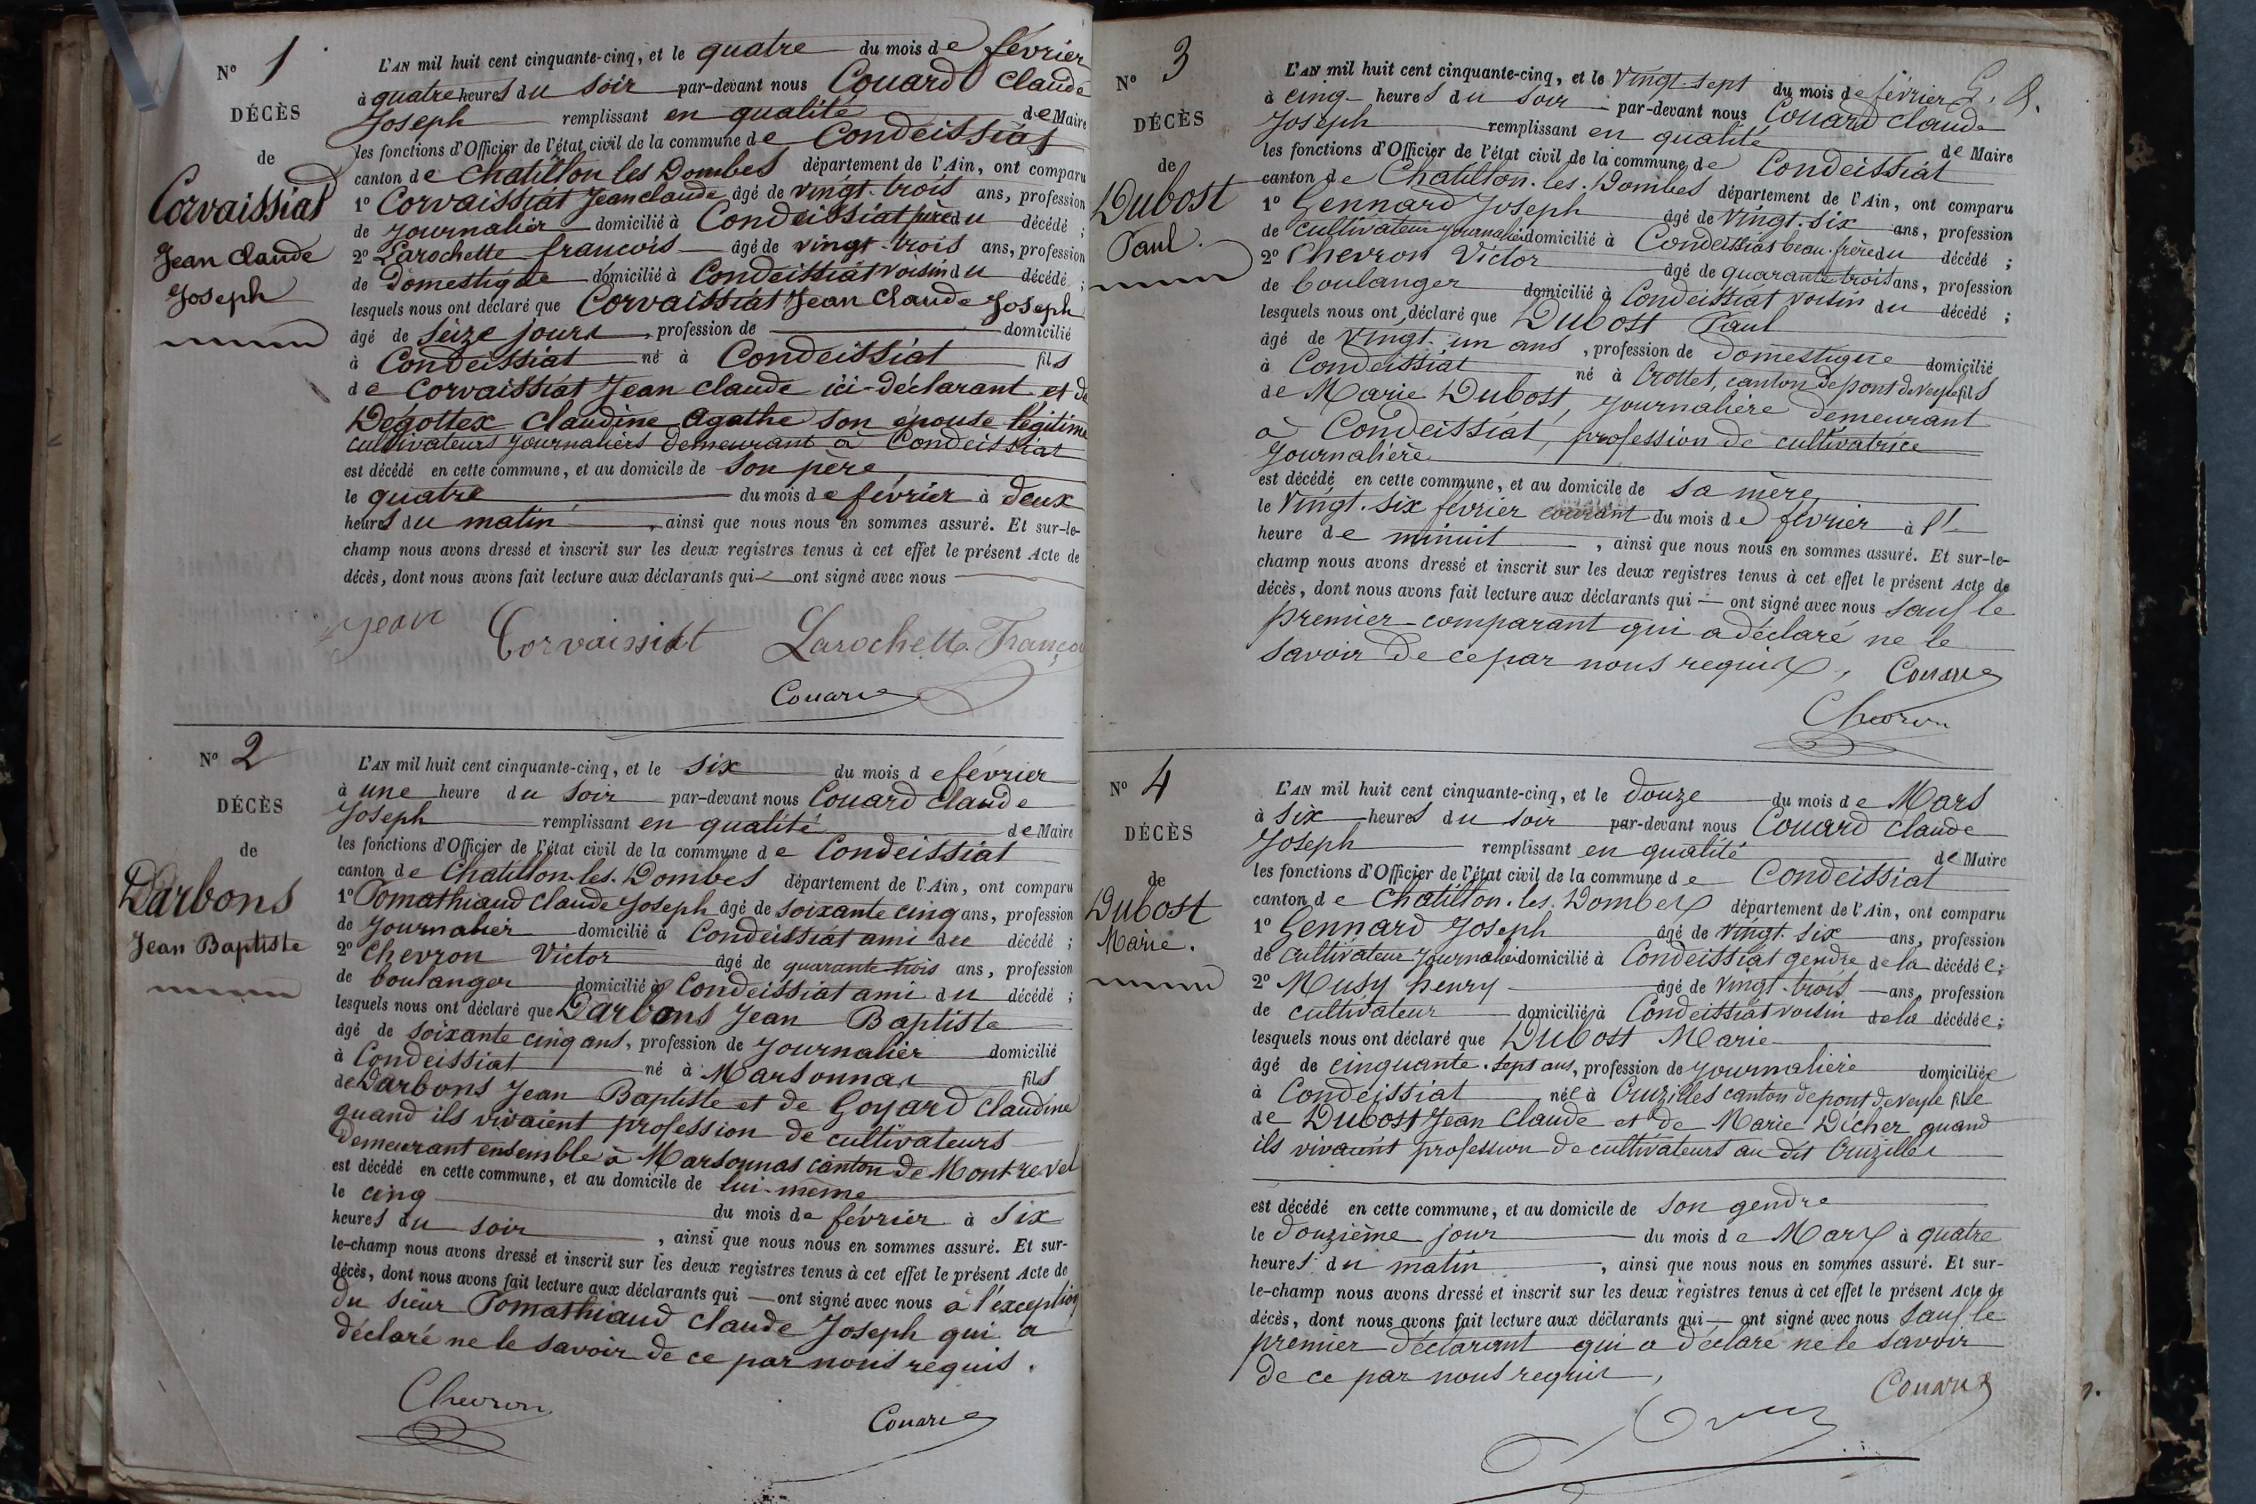 N° 1
DÉCÈS
de
Corvaissiat
Jean Claude
Joseph
L'AN mil huit cent cinquante-cinq, et le quatre du mois de février
à quatre heures du soir par-devant nous Couard Claude
Joseph remplissant en qualité de Maire
les fonctions d'Officier de l'état civil de la commune de Condeissiat
canton de Chatillon les Dombes département de l'Ain, ont comparu
1° Corvaissiat Jean claude âgé de vingt-trois ans, profession
de journalier domicilié à Condeissiat père du décédé ;
2° Larochette francois âgé de vingt-trois ans, profession
de Domestique domicilié à Condeissiat voisin du décédé ;
lesquels nous ont déclaré que Corvaissiat Jean Claude Joseph
âgé de seize jours , profession de domicilié
à Condeissiat né à Condeissiat fils
de Corvaissiat Jean claude ici-déclarant et de
Dégottex Claudine Agathe son épouse légitime
cultivateurs journaliers demeurant à Condeissiat
est décédé en cette commune, et au domicile de son père
le quatre du mois de février à deux
heures du matin , ainsi que nous nous en sommes assuré. Et sur-le-
champ nous avons dressé et inscrit sur les deux registres tenus à cet effet le présent Acte de
décès, dont nous avons fait lecture aux déclarants qui — ont signé avec nous
Jean Corvaissiat Larochette Franço
Couard
N° 2
DÉCÈS
de
Darbons
Jean Baptiste
L'AN mil huit cent cinquante-cinq, et le six du mois de février
à une heure du soir par-devant nous Couard Claude
Joseph remplissant en qualité de Maire
les fonctions d'Officier de l'état civil de la commune de Condeissiat
canton de Chatillon-les-Dombes département de l'Ain, ont comparu
1° Pomathiaud Claude Joseph âgé de soixante cinq ans, profession
de journalier domicilié à Condeissiat ami du décédé ;
2° Chevron Victor âgé de quarante-trois ans, profession
de boulanger domicilié à Condeissiat ami du décédé ;
lesquels nous ont déclaré que Darbons Jean Baptiste
âgé de soixante cinq ans, profession de journalier domicilié
à Condeissiat né à Marsonnas fils
de Darbons Jean Baptiste et de Goyard Claudine
quand ils vivaient profession de cultivateurs
demeurant ensemble à Marsonnas canton de Montrevel
est décédé en cette commune, et au domicile de lui-même
le cinq du mois de février à six
heures du soir , ainsi que nous nous en sommes assuré. Et sur-
le-champ nous avons dressé et inscrit sur les deux registres tenus à cet effet le présent Acte de
décès, dont nous avons fait lecture aux déclarants qui — ont signé avec nous à l'exception
du sieur Pomathiaud Claude Joseph qui a
déclaré ne le savoir de ce par nous requis.
Chevron
Couard
N° 3
DÉCÈS
de
Dubost
Paul.
L'AN mil huit cent cinquante-cinq, et le vingt-sept du mois de février
à cinq heures du soir par-devant nous Couard Claude
Joseph remplissant en qualité de Maire
les fonctions d'Officier de l'état civil de la commune de Condeissiat
canton de Chatillon-les-Dombes département de l'Ain, ont comparu
1° Gennard Joseph âgé de vingt-six ans, profession
de cultivateur journalier domicilié à Condeissiat beau-frère du décédé ;
2° Chevron Victor âgé de quarante trois ans, profession
de boulanger domicilié à Condeissiat voisin du décédé ;
lesquels nous ont déclaré que Dubost Paul
âgé de vingt-un ans , profession de Domestique domicilié
à Condeissiat né à Crottet, canton de pont de veyle fils
de Marie Dubost, journalière demeurant
à Condeissiat, profession de cultivatrice
journalière
est décédé en cette commune, et au domicile de sa mère
le vingt-six février courant du mois de février à l'
heure de minuit , ainsi que nous nous en sommes assuré. Et sur-le-
champ nous avons dressé et inscrit sur les deux registres tenus à cet effet le présent Acte de
décès, dont nous avons fait lecture aux déclarants qui — ont signé avec nous sauf le
premier comparant qui a déclaré ne le
savoir de ce par nous requis, Couard
Chevron
N° 4
DÉCÈS
de
Dubost
Marie.
L'AN mil huit cent cinquante-cinq, et le douze du mois de Mars
à six heures du soir par-devant nous Couard Claude
Joseph remplissant en qualité de Maire
les fonctions d'Officier de l'état civil de la commune de Condeissiat
canton de Chatillon-les-Dombes département de l'Ain, ont comparu
1° Gennard Joseph âgé de vingt six ans, profession
de cultivateur journalier domicilié à Condeissiat gendre de la décédée ;
2° Musy henry âgé de vingt-trois ans, profession
de cultivateur domicilié à Condeissiat voisin de la décédée ;
lesquels nous ont déclaré que Dubost Marie
âgé de cinquante-sept ans, profession de journalière domiciliée
à Condeissiat née à Cruzilles canton de pont de veyle fille
de Dubost Jean Claude et de Marie Dicher quand
ils vivaint profession de cultivateurs au dit Cruzilles
est décédé en cette commune, et au domicile de son gendre
le douzième jour du mois de Mars à quatre
heures du matin , ainsi que nous nous en sommes assuré. Et sur-
le-champ nous avons dressé et inscrit sur les deux registres tenus à cet effet le présent Acte de
décès, dont nous avons fait lecture aux déclarants qui — ont signé avec nous sauf le
premier déclarant qui a déclaré ne le savoir
de ce par nous requis,
Couard